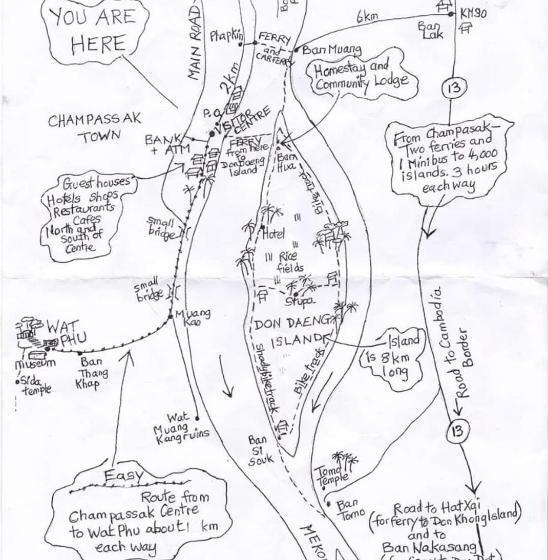 YOU ARE
HERE
MAIN ROAD
Phapkin
FERRY
and
CARFERRY
Ban Muang
6km
Ban
Lak
KM30
13
2km
Homestay and
Community Lodge
P.O
VISITOR CENTRE
CHAMPASSAK
TOWN
BANK
+ ATM
FERRY
from here
to
Don Daeng
Island
Ban
Hua
Bike track
From Champasak-
Two ferries and
1 Minibus to 4,000
islands. 3 hours
each way
Guesthouses
Hotels Shops
Restaurants
Cafes
North and
South of
Centre
small
bridge
Hotel
Rice
fields
small
bridge
Stupa
Muang
Kao
DON DAENG
ISLAND
Island
is 8km
long
Road to Cambodia
Border
WAT
PHU
museum
Sida
temple
Ban
Thang
Khap
Shady bike track
Bike track
Wat
Muang
Kang ruins
Ban
Si
Souk
13
Tomo
Temple
Ban
Tomo
Easy
Route from
Champassak Centre
to Wat Phu about 1 km
each way
Road to Hat Xai
(for ferry to Don Khong Island)
and to
Ban Nakasang
MEKO